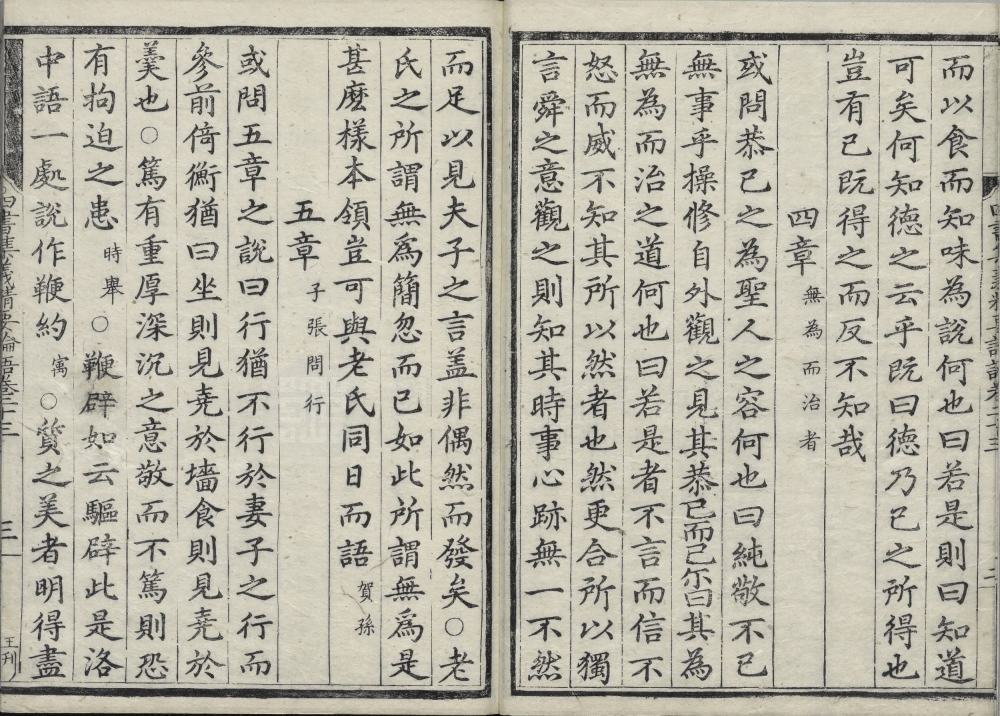 而以食而知味為說何也曰若是則曰知道
可矣何知德之云乎既曰德乃己之所得也
豈有已既得之而反不知哉
四章 無為而治者
或問恭己之為聖人之容何也曰純敬不已
無事乎操修自外觀之見其恭己而已尓曰其為
無為而治之道何也曰若是者不言而信不
怒而威不知其所以然者也然更合所以獨
言舜之意觀之則知其時事心跡無一不然
而足以見夫子之言盖非偶然而發矣○老
氏之所謂無為簡忽而已如此所謂無為是
甚麽樣本領豈可與老氏同日而語 賀孫
五章 子張問行
或問五章之說曰行猶不行於妻子之行而
參前倚衡猶曰坐則見堯於墻食則見堯於
羹也○篤有重厚深沉之意敬而不篤則恐
有拘迫之患 時舉○鞭辟如云驅辟此是洛
中語一處說作鞭約 㝢○質之美者明得盡
四書集義精要論語卷二十三
三
王刊